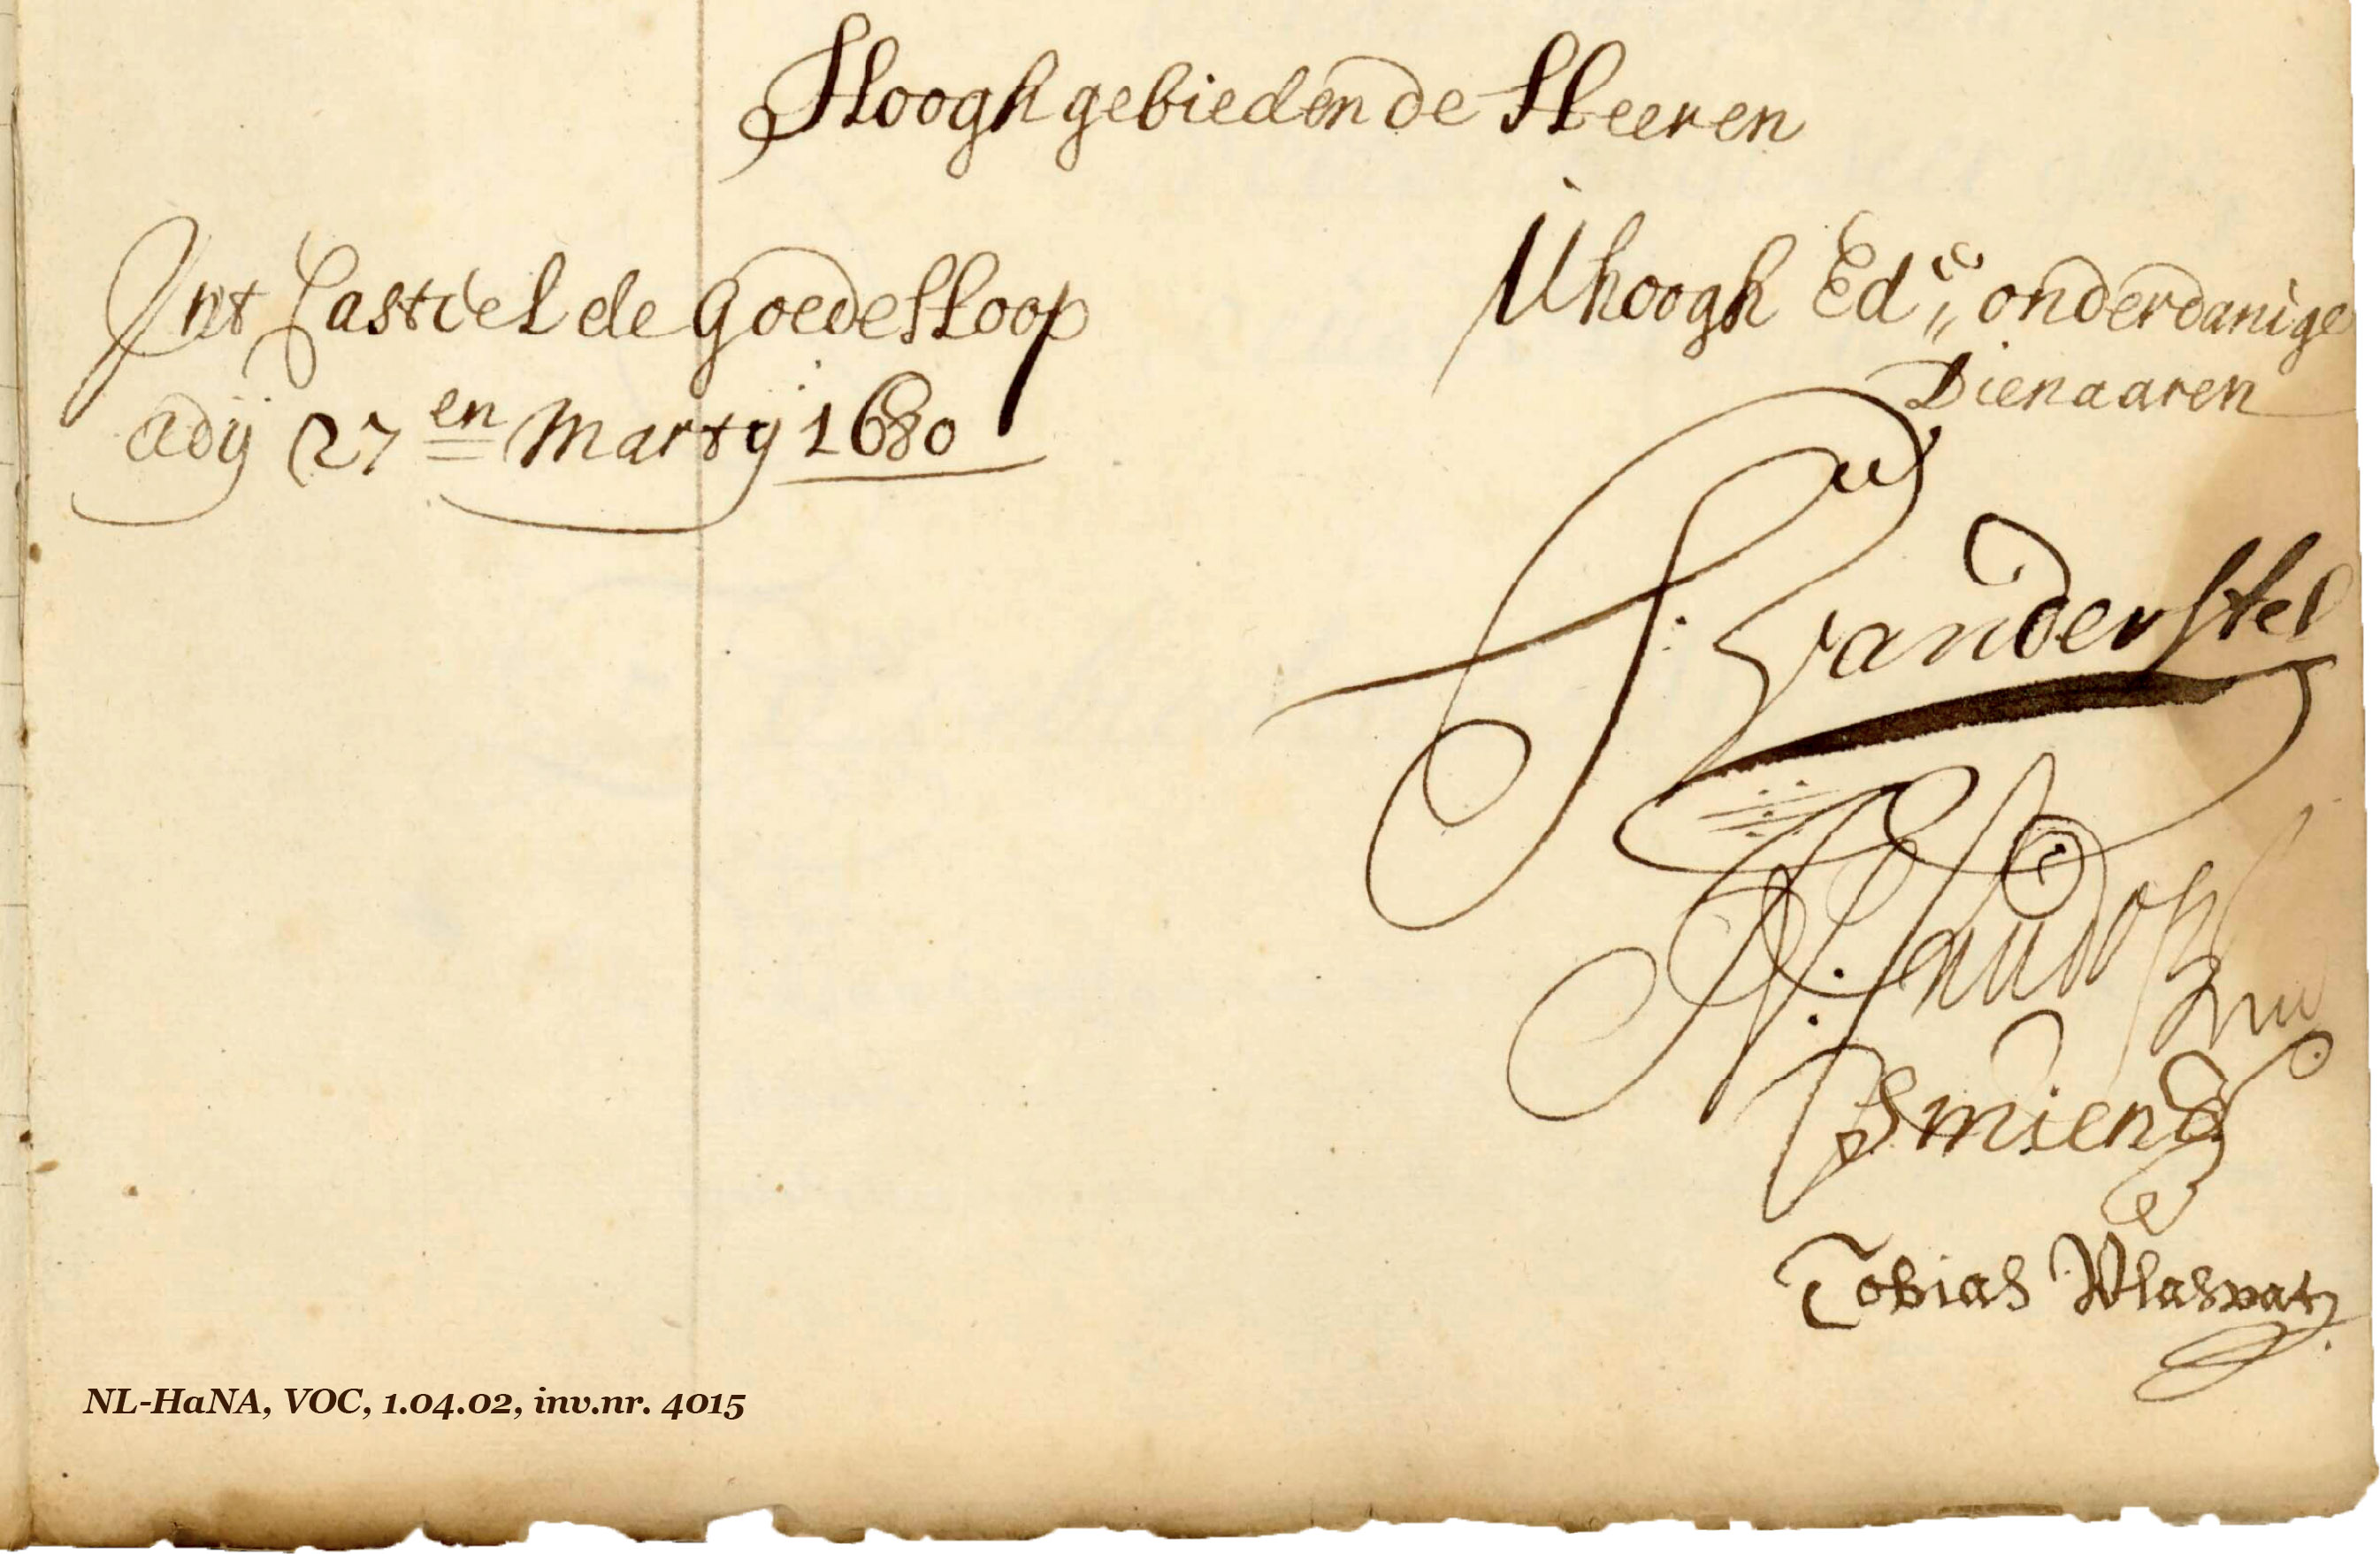 Hoogh gebiedende Heeren
Int Casteel de Goede Hoop
adij 27en Martij 1680
U hoogh Ed:: onderdanige
Dienaaren
S: vander Stel
Smient
Tobias Vlasvatz
NL-HaNA, VOC, 1.04.02, inv.nr. 4015